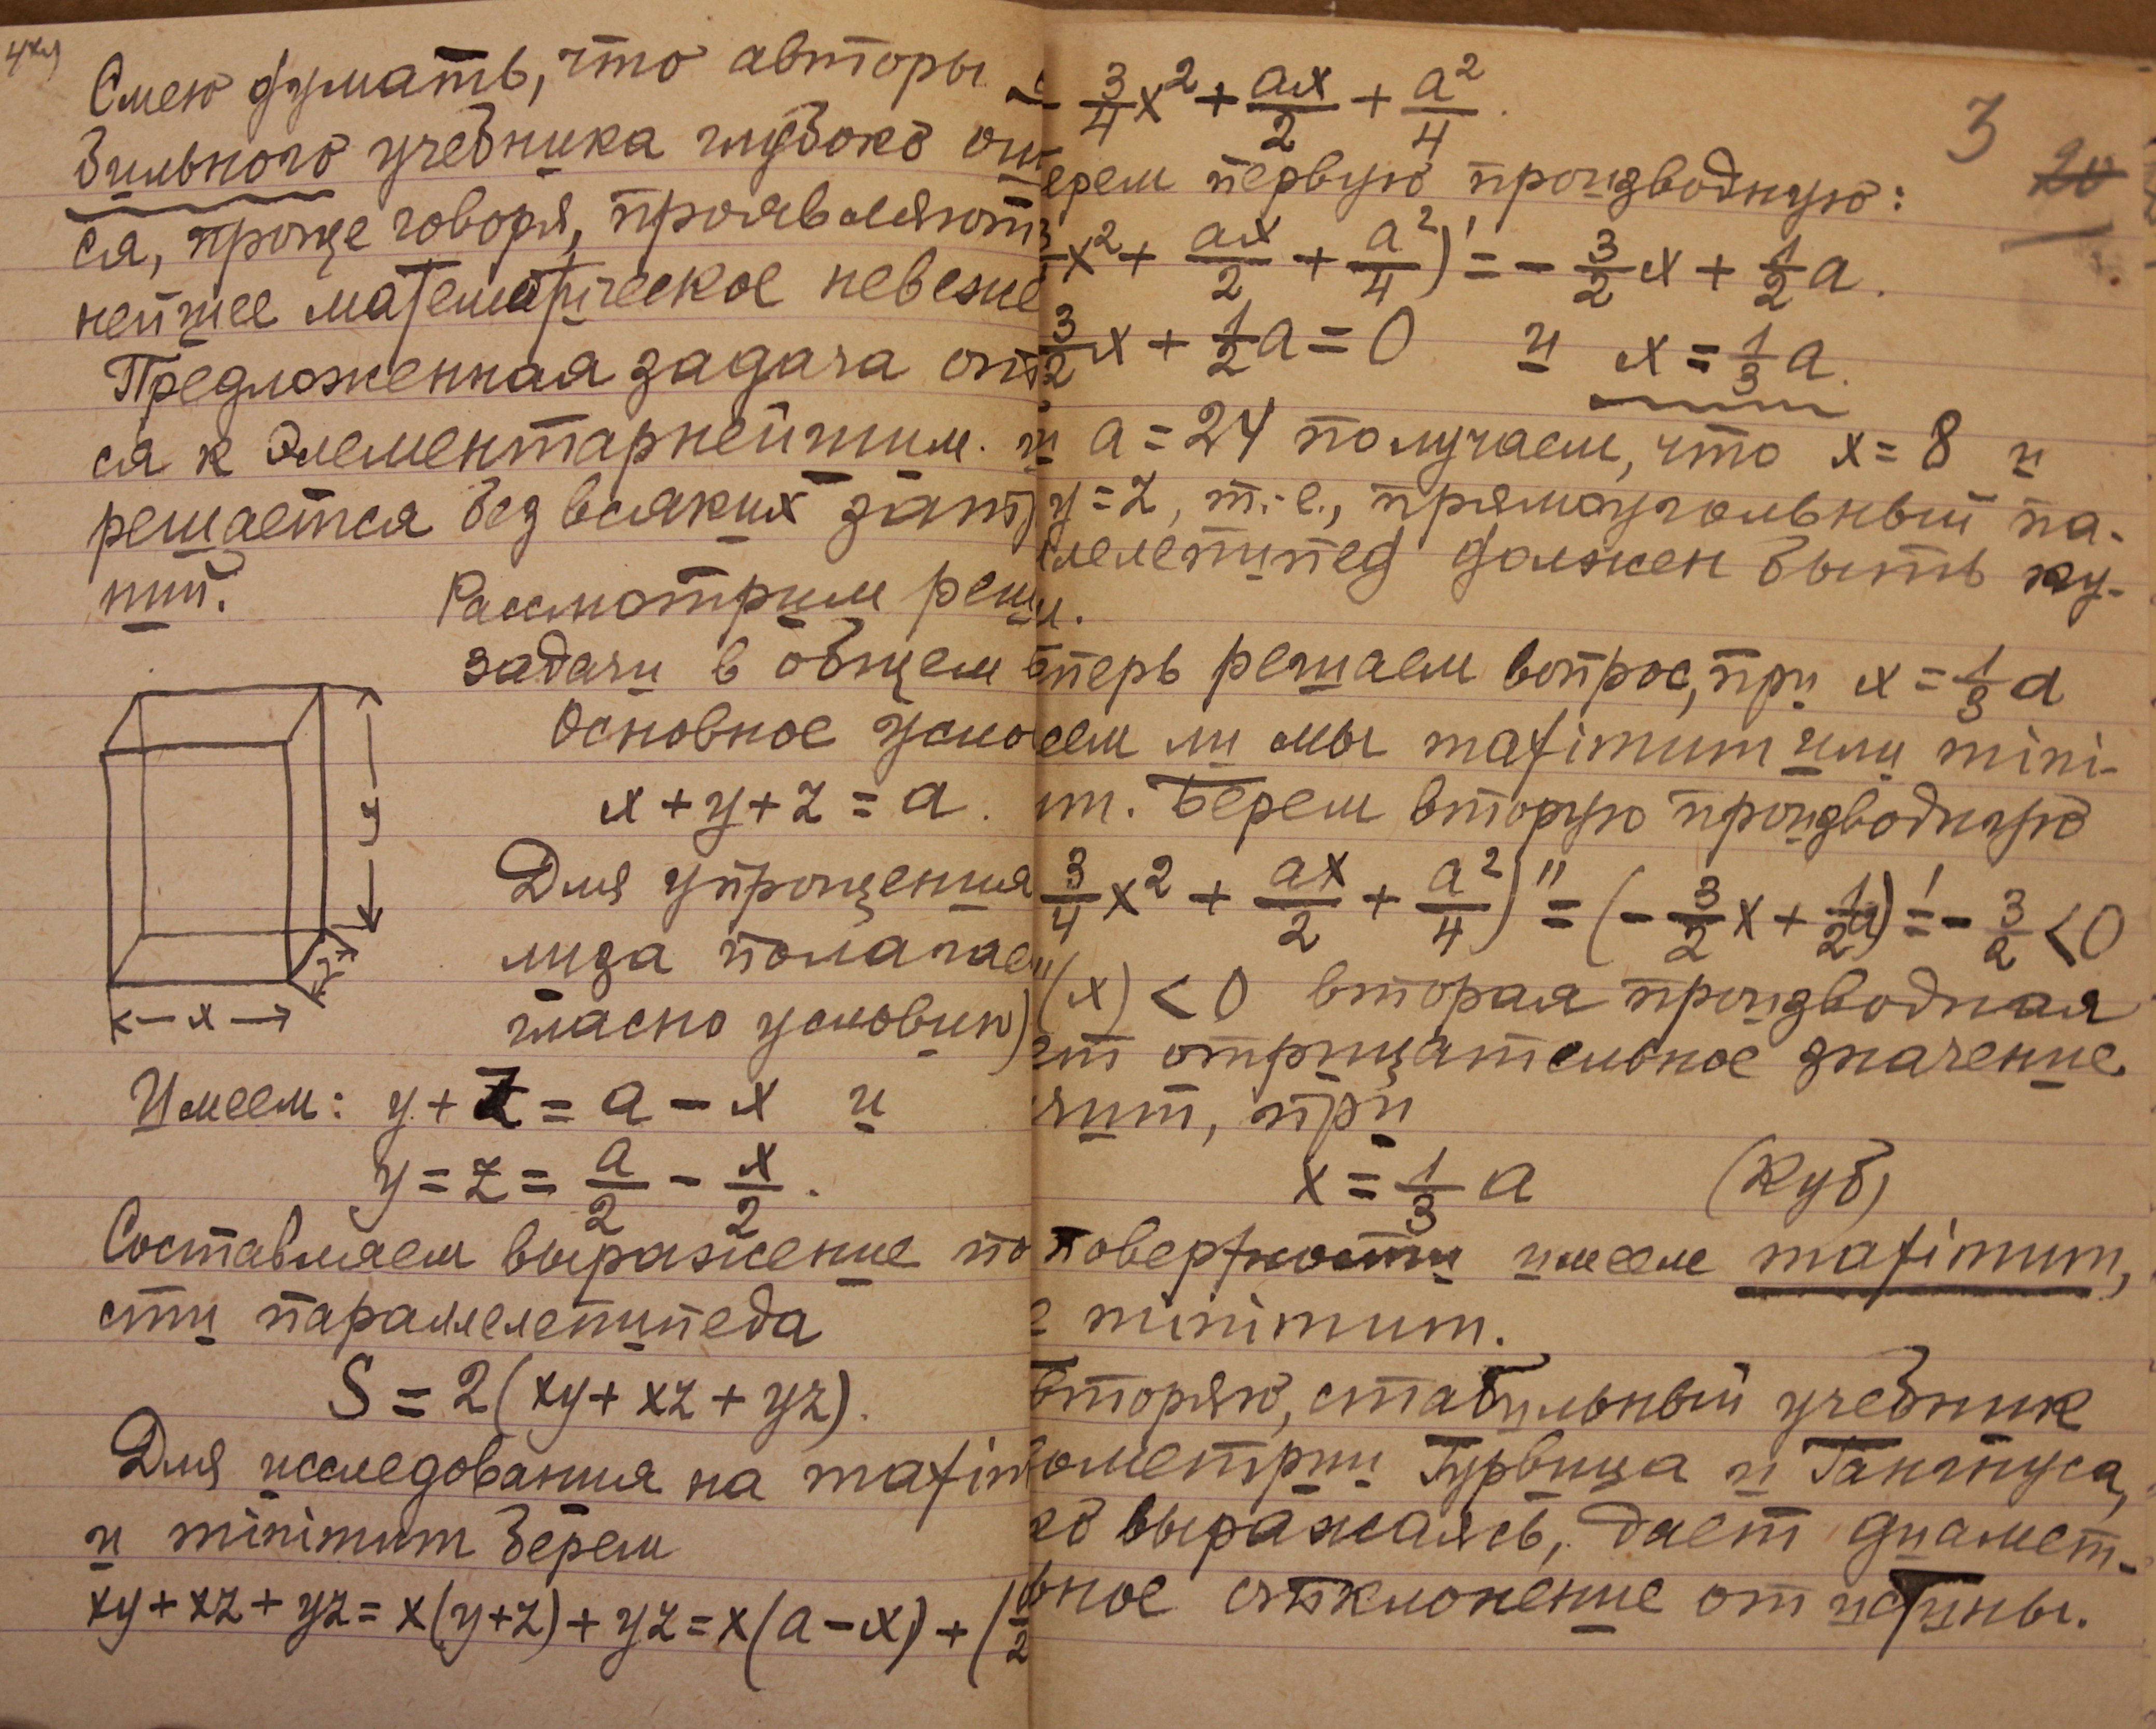 Смею думать, что авторы
бильного учебника глубоко ош
ся, проще говоря, проявляют
нейшее математическое невеже
Предложенная задача отн
ся к элементарнейшим. и
решается без всяких зат
ний.
Рассмотрим реш
задачи в общем
Основное усло
x + y + z = a.
Для упрощения
лиза полагае
гласно условию)
y
z
x
Имеем: y + z = a - x и
y = z = a/2 - x/2.
Составляем выражение по
сти параллелепипеда
S = 2(xy + xz + yz).
Для исследования на maxim
и minimum берем
xy + xz + yz = x(y+z) + yz = x(a-x) + (
3
20
- 3/4 x² + ax/2 + a²/4.
ерем первую производную:
x² + ax/2 + a²/4)' = - 3/2 x + 1/2 a.
3/2 x + 1/2 a = 0 и x = 1/3 a.
и a = 24 получаем, что x = 8 и
y = z, т.-е., прямоугольный па-
лелепипед должен быть ку-
м.
еперь решаем вопрос, при x = 1/3 a
еем ли мы maximum или mini-
m. Берем вторую производную
3/4 x² + ax/2 + a²/4)'' = (- 3/2 x + 1/2 a)' = - 3/2 < 0
''(x) < 0 вторая производная
ет отрицательное значение.
чит, при
x = 1/3 a (куб)
поверхности имеем maximum,
е minimum.
вторяю, стабильный учебник
ометрии Гурвица и Гангнуса,
ко выражаясь, дает диамет-
ьное отклонение от истины.